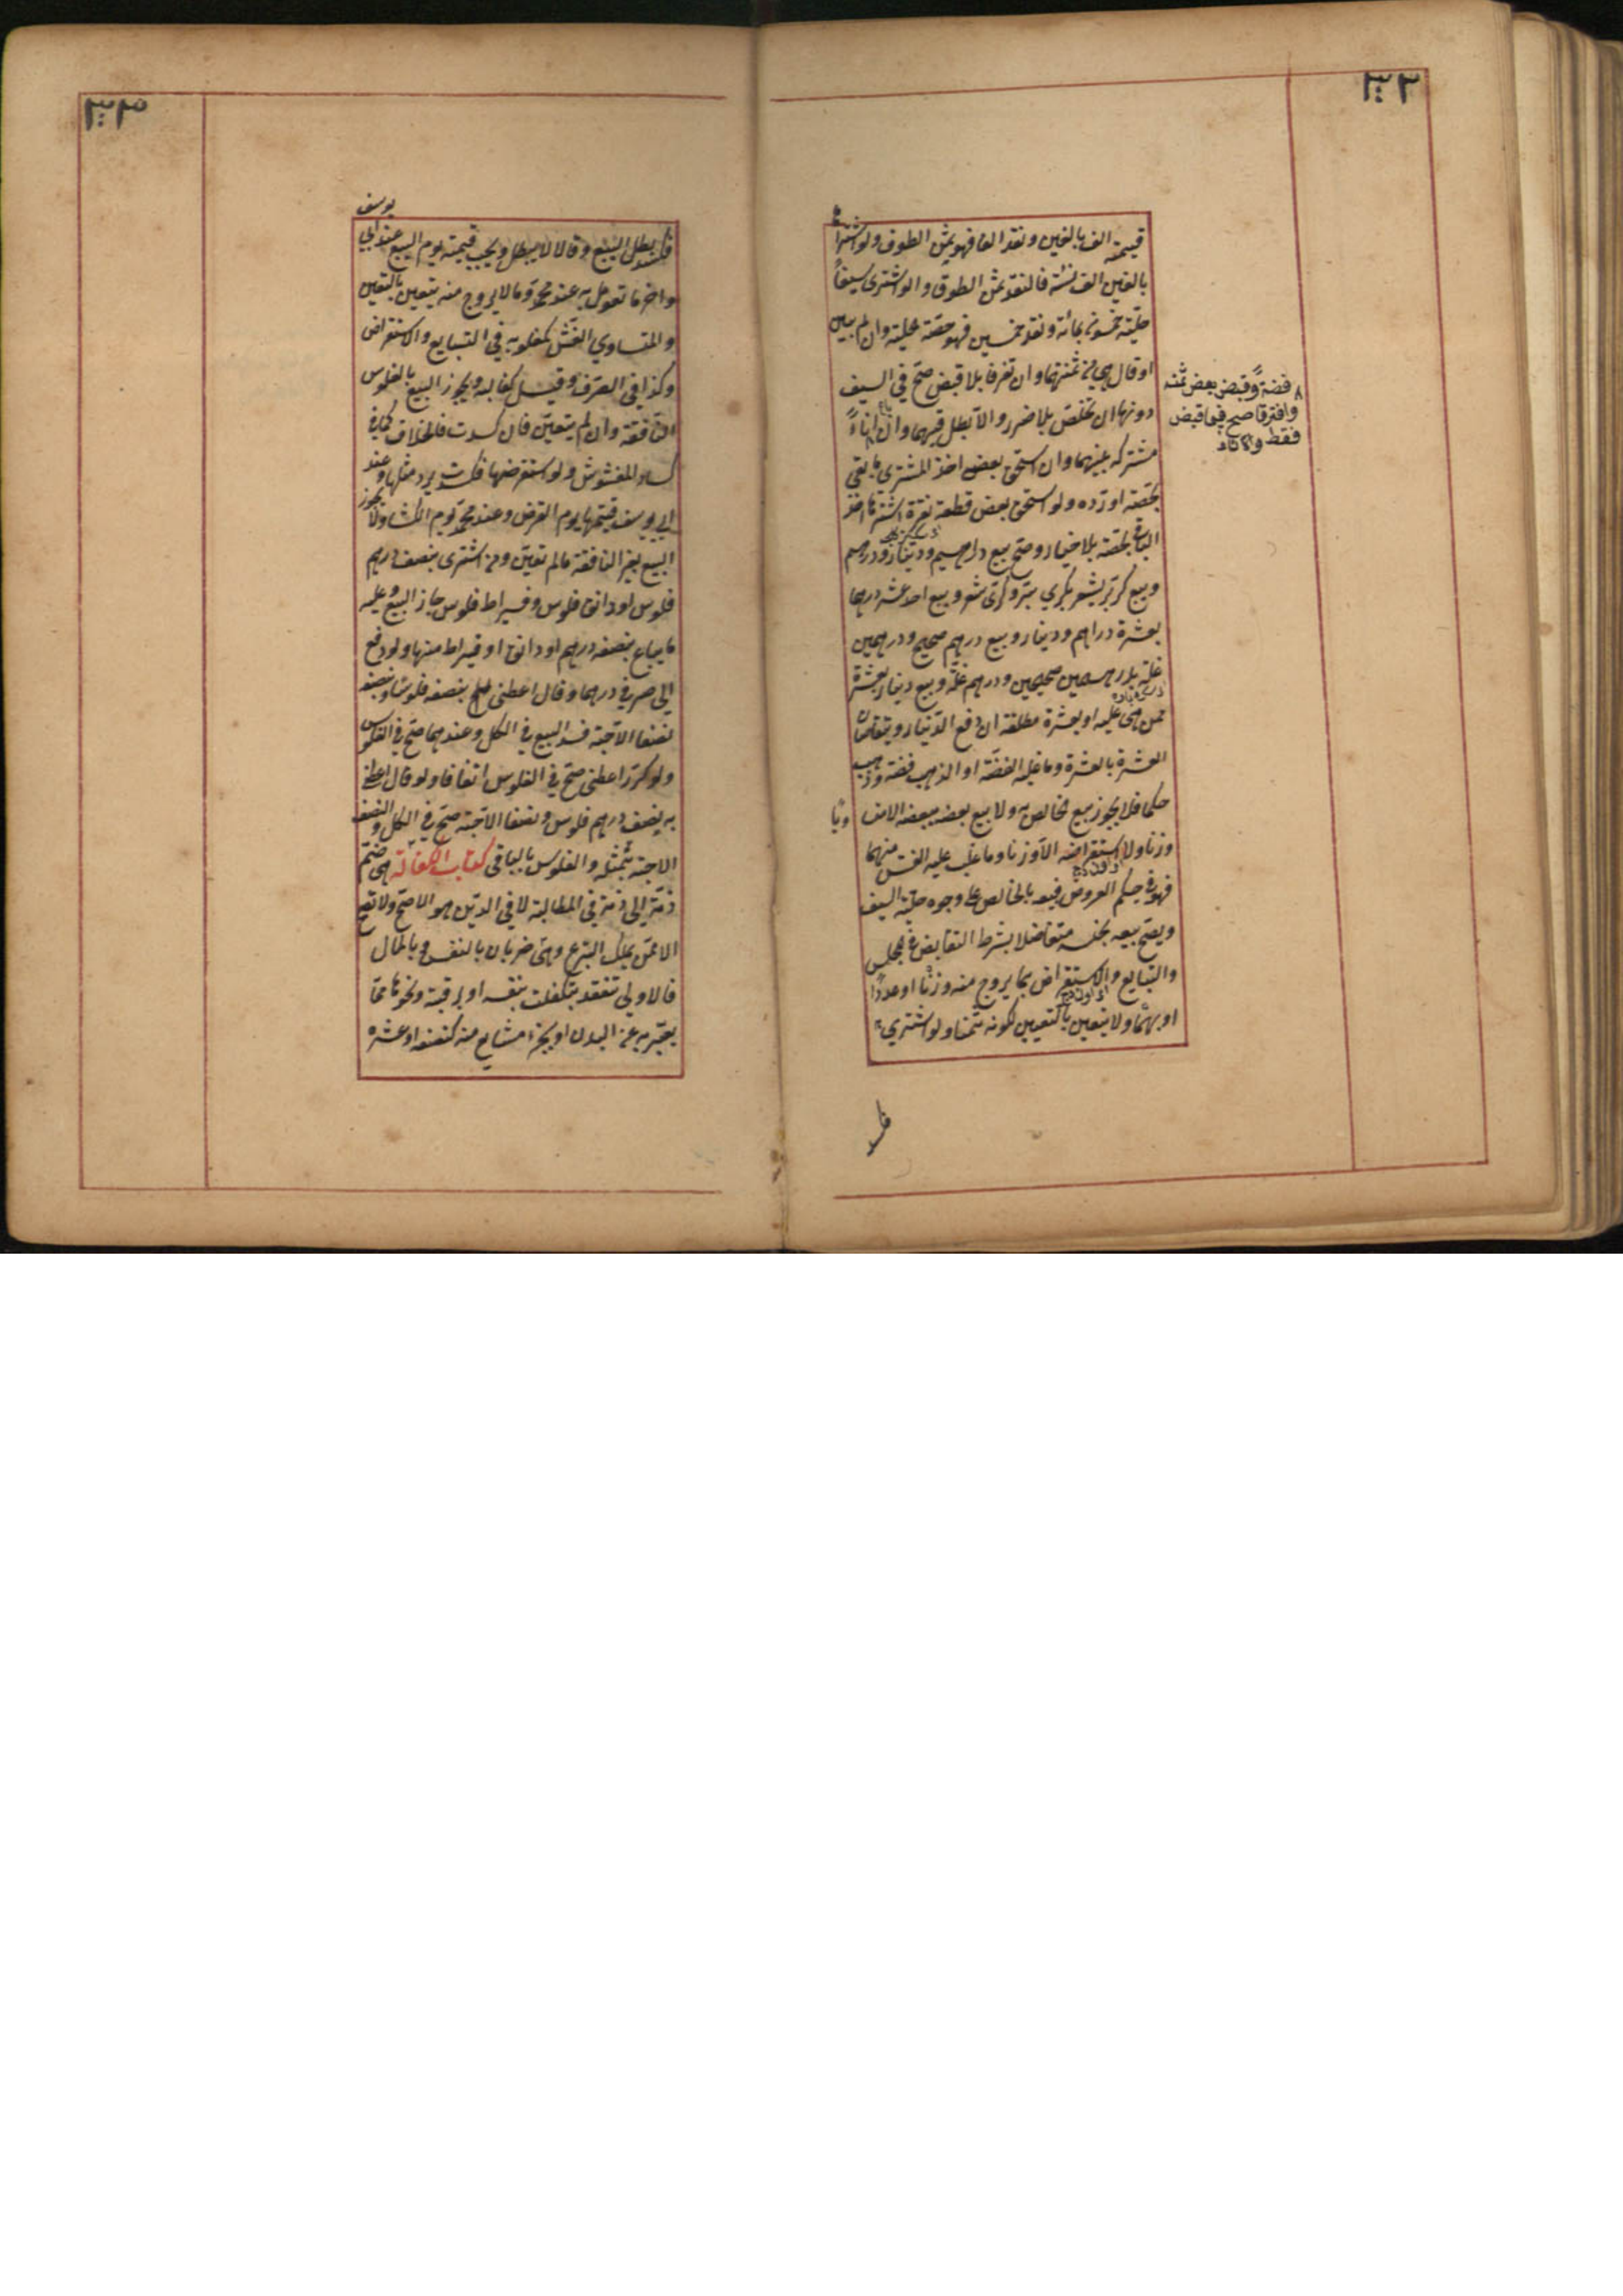 ٣٣٢
قيمته الف بالفين ونقد الفا فهو ثمن الطوق ولو اشتراها
بالفين الف نسئة فالنقد ثمن الطوق والو اشترى سيفاً
حليته خمسون بمائة ونقد خمسين فهو حصة الحلية وان لم يبين
او قال هي من ثمنهما وان تفرقا بلا قبض صح في السيف
دونها ان تخلص بلا ضرر والا بطل فيهما وان باع اناءً
فضة وقبض بعض ثمنه
وافترقا صح فيما قبض
فقط والاناء
مشترك بينهما وان استحق بعض اخذ المشتري ما بقي
بحصته او رده ولو استحق بعض قطعة نقرة اشتراها اخذ
الباقي بحصته بلا خيار وصح بيع درهمين ودينار ودرهم
وبيع كر بر وشعير بكري بر وكري شعير وبيع احد عشر درهما
بعشرة دراهم ودينار وبيع درهم صحيح ودرهمين
غلة بدرهمين صحيحين ودرهم غلة وبيع دينار بعشرة
ممن هي عليه او بعشرة مطلقة ان دفع الدينار ويتقاصان
العشرة بالعشرة وما غلبه الفضة او الذهب فضة وذهب
حكما فلا يجوز بيع الخالص به ولا بيع بعضه ببعضه الا متساويا
وزنا ولا استقراضه الا وزنا وما غلب عليه الغش منهما
فهو في حكم العروض فبيعه بالخالص على وجوه حلية السيف
ويصح بيعه بجنسه متفاضلا بشرط التقابض في المجلس
والتبايع والاستقراض بما يروج منه وزنا او عددًا
او بهما ولا يتعين بالتعيين لكونه ثمنا ولو اشترى به
فكسد
٣٣٣
فكسد بطل البيع وقالا لا يبطل ويجب قيمته يوم البيع عند ابي
يوسف
واخر ما تعومل به عند محمد وما لا يروج منه يتعين بالتعيين
والمتساوي الغش كمغلوبه في التبايع والاستقراض
وكذا في الصرف وقيل كغالبه ويجوز البيع بالفلوس
النافقة وان لم يتعين فان كسدت فالخلاف كما في
كساد المغشوش ولو استقرضها فكسدت يرد مثلها وعند
ابي يوسف قيمتها يوم القرض وعند محمد يوم الكساد ولا يجوز
البيع بغير النافقة ما لم تعين ومن اشترى بنصف درهم
فلوس او دانق فلوس وقيراط فلوس جاز البيع وعليه
ما يباع بنصف درهم او دانق او قيراط منها ولو دفع
الى صيرفي درهما وقال اعطني بنصفه فلوسًا وبنصفه
نصفا الا حبة فسد البيع في الكل وعندهما صح في الفلوس
ولو كرر اعطني صح في الفلوس اتفاقا ولو قال اعطني
به نصف درهم فلوس ونصفا الا حبة صح في الكل والنصف
الا حبة بمثله والفلوس بالباقي كتاب الكفالة هي ضم
ذمة الى ذمة في المطالبة لا في الدين هو الاصح ولا تصح
الا ممن يملك التبرع وهي ضربان بالنفس وبالمال
فالاولى تنعقد بتكفلت بنفسه او برقبته ونحوها مما
يعبر به عن البدن او بجزء مشايع منه كنصفه او عشره